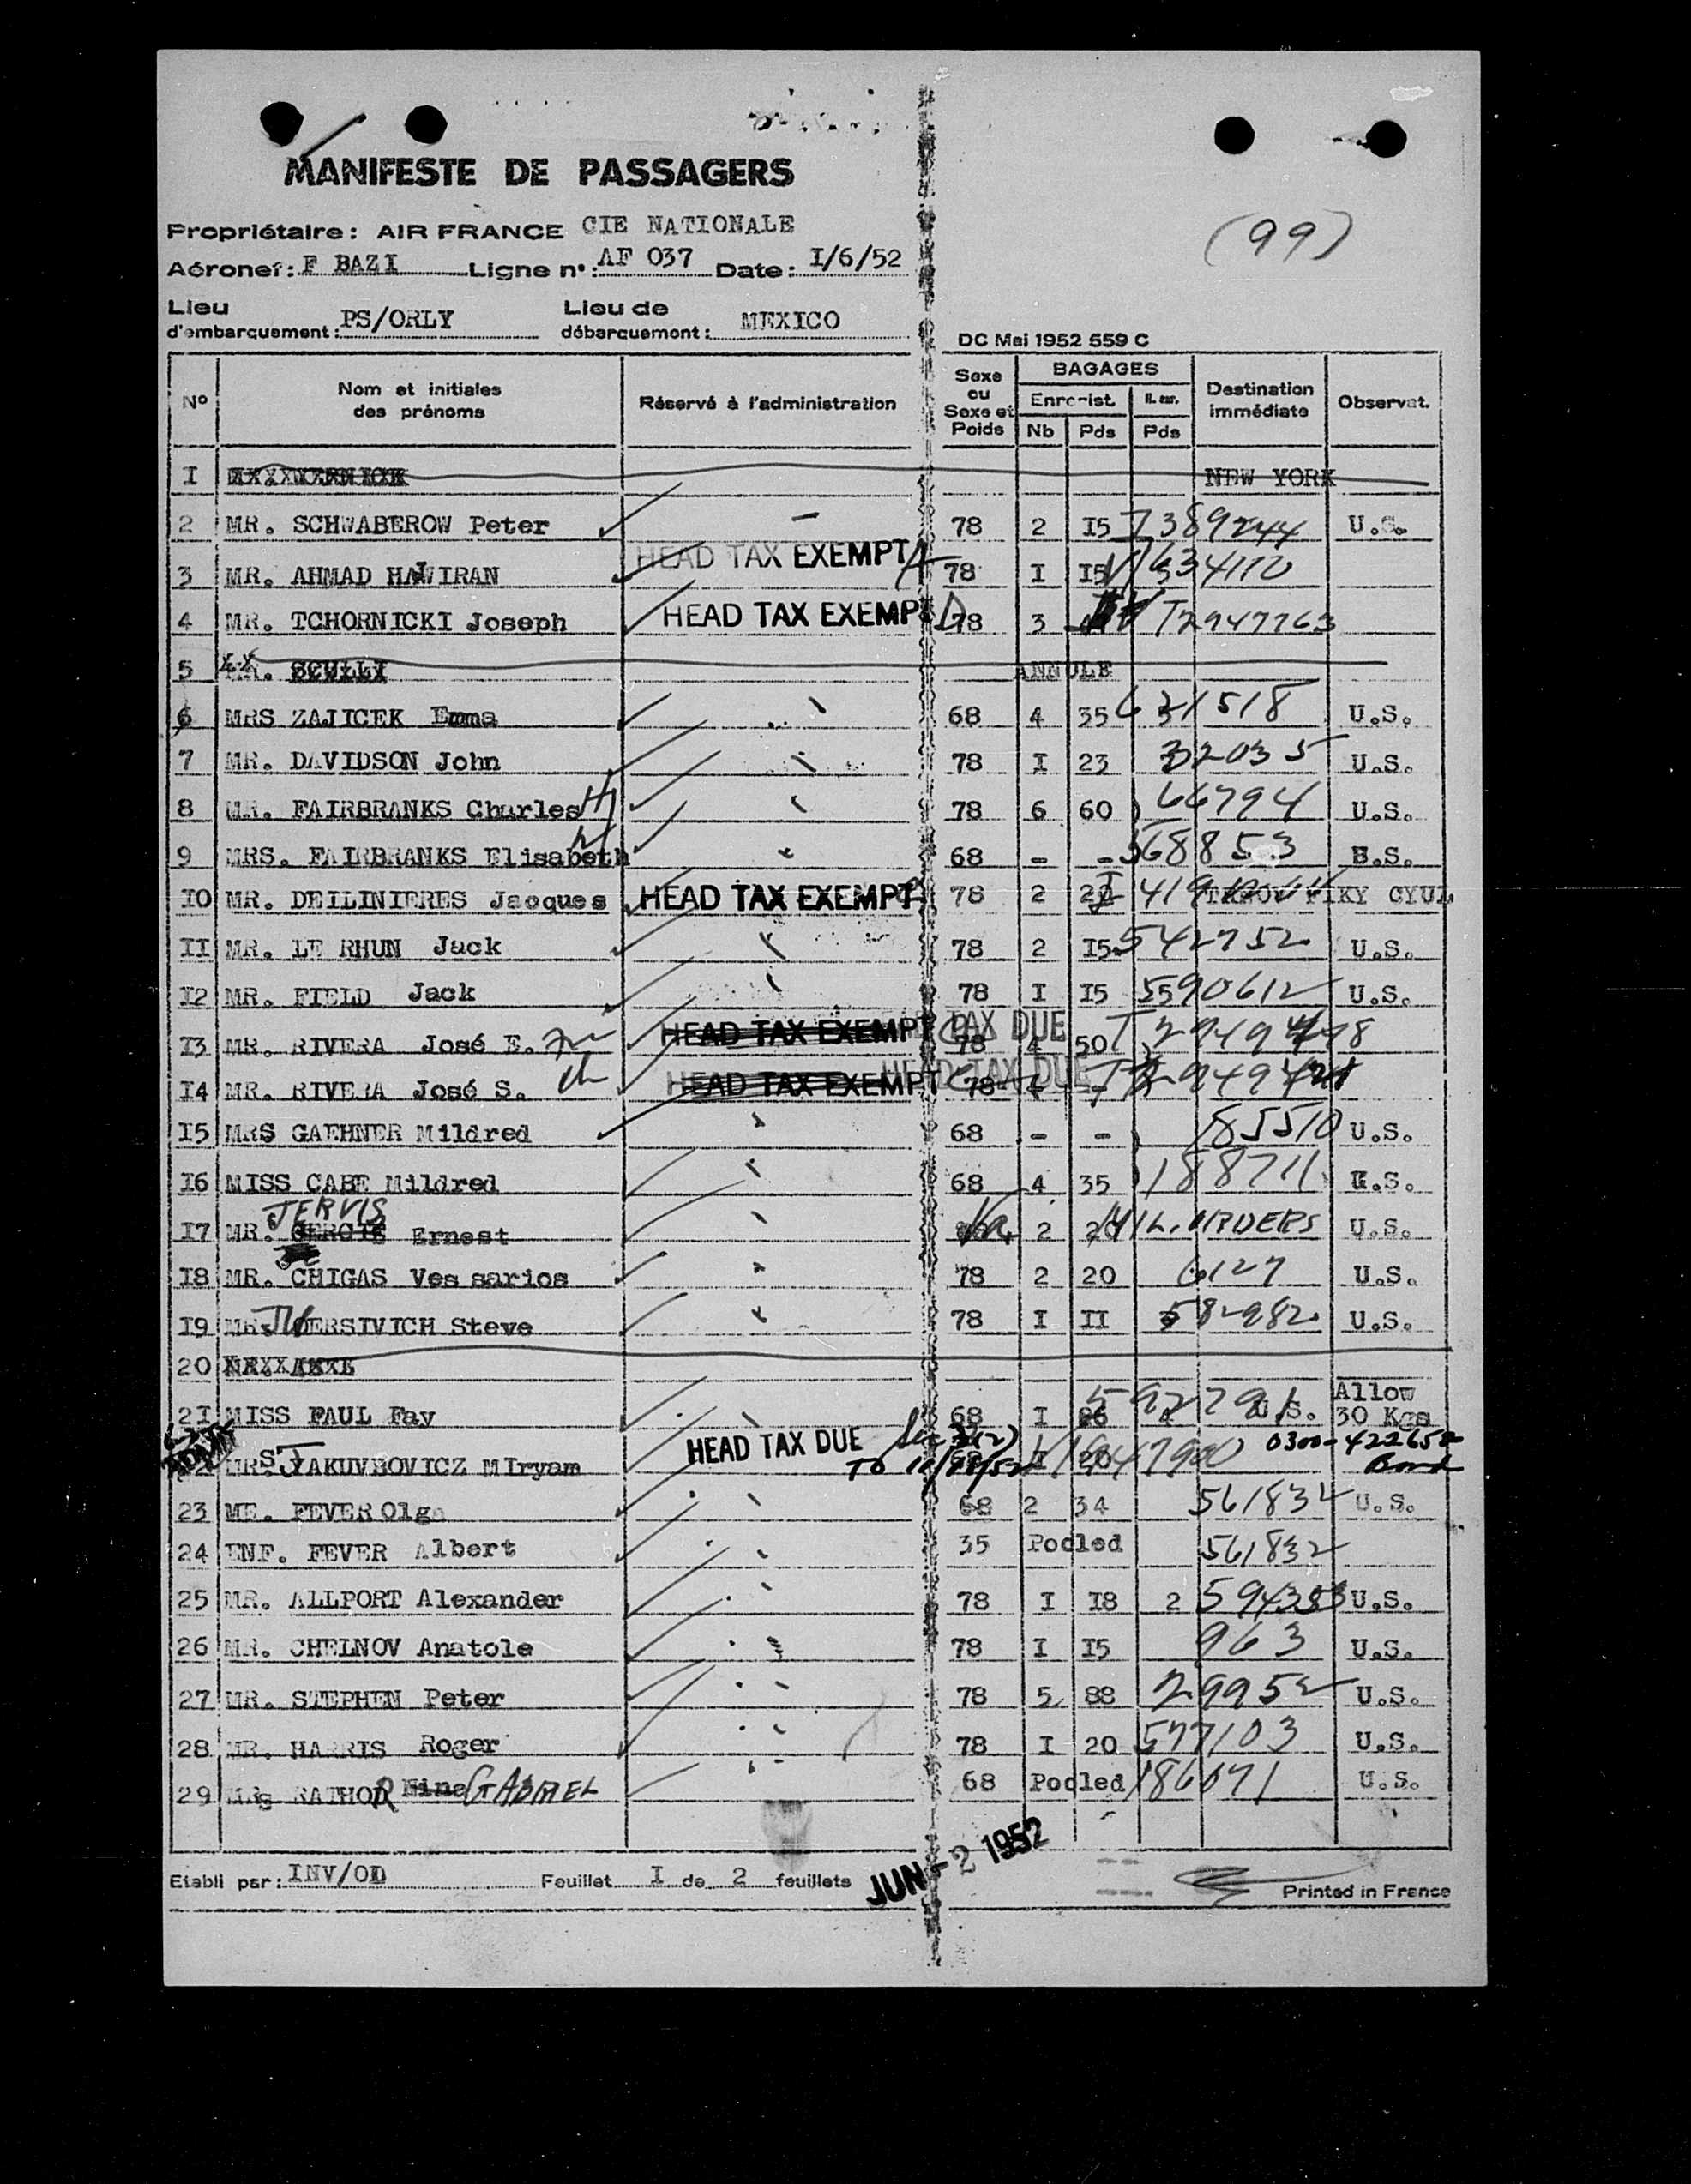 MANIFESTE DE PASSAGERS
Propriétaire: AIR FRANCE CIE NATIONALE
(99)
Aéronef: F BAZI Ligne n°: AF 037 Date: I/6/52
Lieu d'embarquement: PS/ORLY Lieu de débarquement: MEXICO
DC Mai 1952 559 C
N° Nom et initiales des prénoms Réservé à l'administration Sexe ou Sexe et Poids BAGAGES Enregist. Nb Pds Pds Destination immédiate Observat.
I NEW YORK
2 MR. SCHWABEROW Peter 78 2 I5 I389244 U.S.
3 MR. AHMAD HAWIRAN HEAD TAX EXEMPT A 78 I I5 634110
4 MR. TCHORNICKI Joseph HEAD TAX EXEMPT D 78 3 T2947763
5 MR. SCULLY ANNULE
6 MRS ZAJICEK Emma 68 4 35 621518 U.S.
7 MR. DAVIDSON John 78 I 23 32035 U.S.
8 MR. FAIRBRANKS Charles H 78 6 60 66794 U.S.
9 MRS. FAIRBRANKS Elisabeth W 68 - - 568853 U.S.
I0 MR. DEILINIERES Jacques HEAD TAX EXEMPT 78 2 CYUL
II MR. LE RHUN Jack 78 2 I5 542752 U.S.
I2 MR. FIELD Jack 78 I I5 590612 U.S.
I3 MR. RIVERA José E. HEAD TAX EXEMPT HEAD TAX DUE 78 4 50
I4 MR. RIVERA José S. ch HEAD TAX EXEMPT HEAD TAX DUE 78 - -
I5 MRS GAEHNER Mildred 68 - - 185510 U.S.
I6 MISS CABE Mildred 68 4 35 188711 U.S.
I7 MR. JERVIS Ernest 2 20 MIL. ORDERS U.S.
I8 MR. CHIGAS Ves sarios 78 2 20 6127 U.S.
I9 MR. OERSIVICH Steve 78 I II 582982 U.S.
20
2I MISS PAUL Fay 68 I 592791 U.S. Allow 30 Kgs
22 MRS JAKUVBOVICZ MIryam HEAD TAX DUE TO I 20 0300-422652 Bond
23 ME. FEVER Olga 68 2 34 561832 U.S.
24 ENF. FEVER Albert 35 Pooled 561832
25 MR. ALLPORT Alexander 78 I I8 2 594353 U.S.
26 MR. CHELNOV Anatole 78 I I5 963 U.S.
27 MR. STEPHEN Peter 78 5 88 29952 U.S.
28 MR. HARRIS Roger 78 I 20 577103 U.S.
29 MRS RATHOR Nina GABRIEL 68 Pooled 186071 U.S.
JUN -2 1952
Etabli par: INV/OD Feuillet I de 2 feuillets
Printed in France